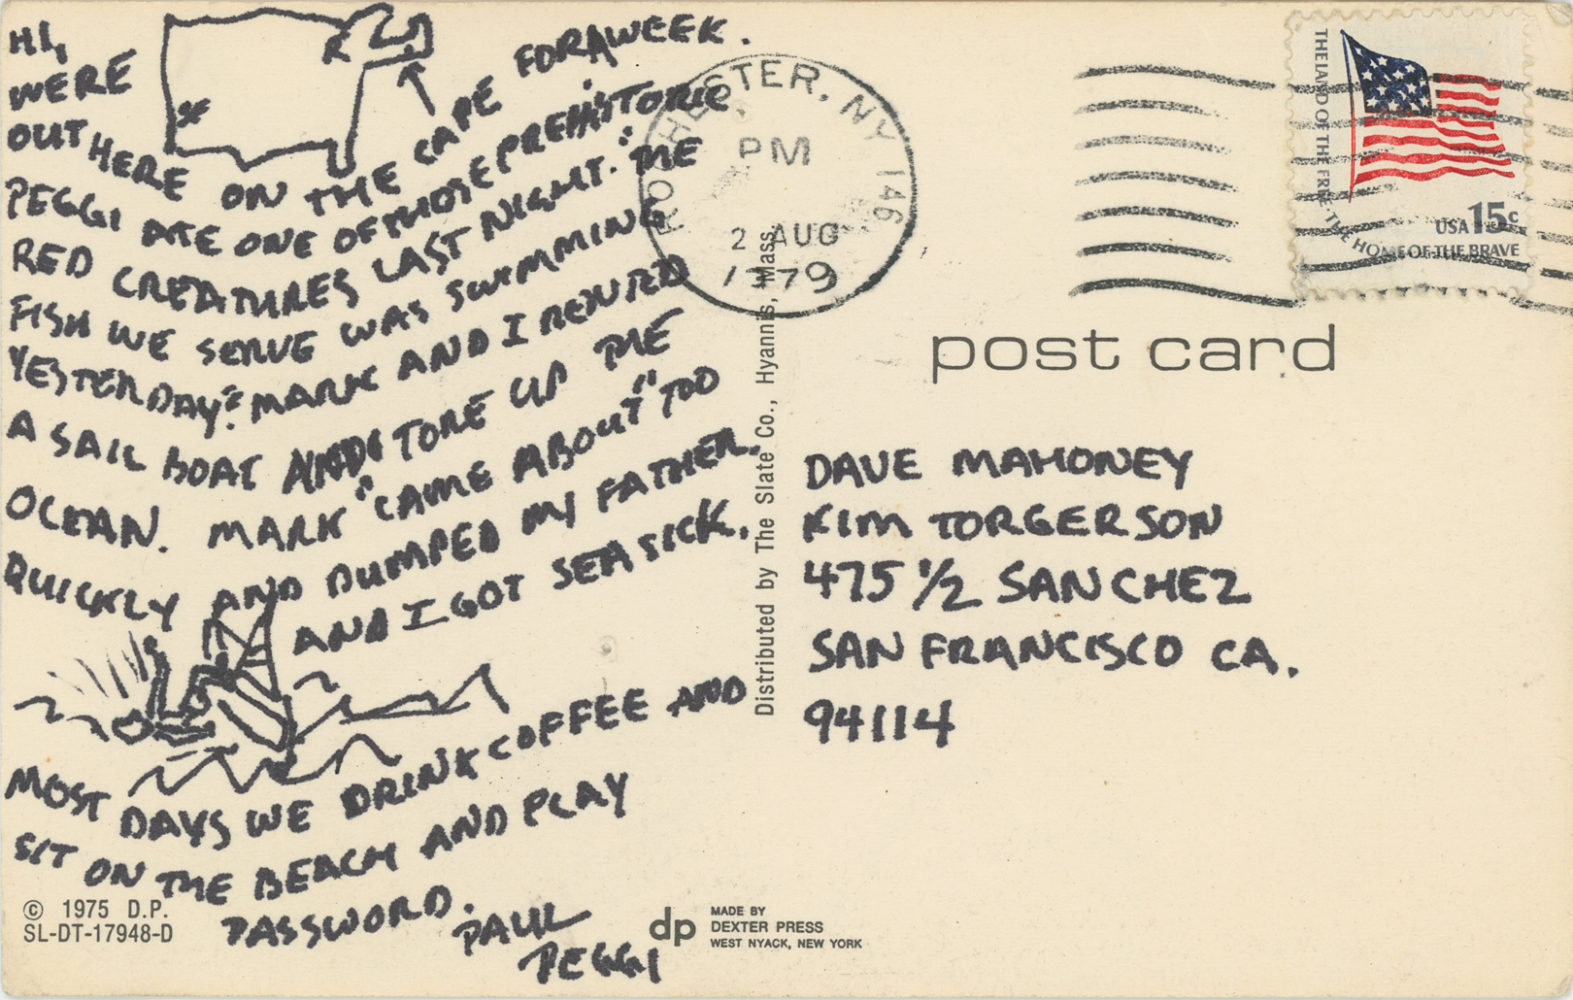 HI,
WERE
OUT HERE ON THE CAPE FOR A WEEK.
PEGGI ATE ONE OF THOSE PREHISTORIC
RED CREATURES LAST NIGHT. "THE
FISH WE SERVE WAS SWIMMING
YESTERDAY". MARK AND I RENTED
A SAIL BOAT AND TORE UP THE
OCEAN. MARK "CAME ABOUT" TOO
QUICKLY AND DUMPED MY FATHER.
AND I GOT SEA SICK.
MOST DAYS WE DRINK COFFEE AND
SIT ON THE BEACH AND PLAY
PASSWORD.
PAUL
PEGGI
© 1975 D.P.
SL-DT-17948-D
dp
MADE BY
DEXTER PRESS
WEST NYACK, NEW YORK
Distributed by The Slate Co., Hyannis, Mass.
ROCHESTER, NY 146
PM
2 AUG
1979
THE LAND OF THE FREE THE HOME OF THE BRAVE
USA 15c
post card
DAVE MAHONEY
KIM TORGERSON
475 1/2 SANCHEZ
SAN FRANCISCO CA.
94114